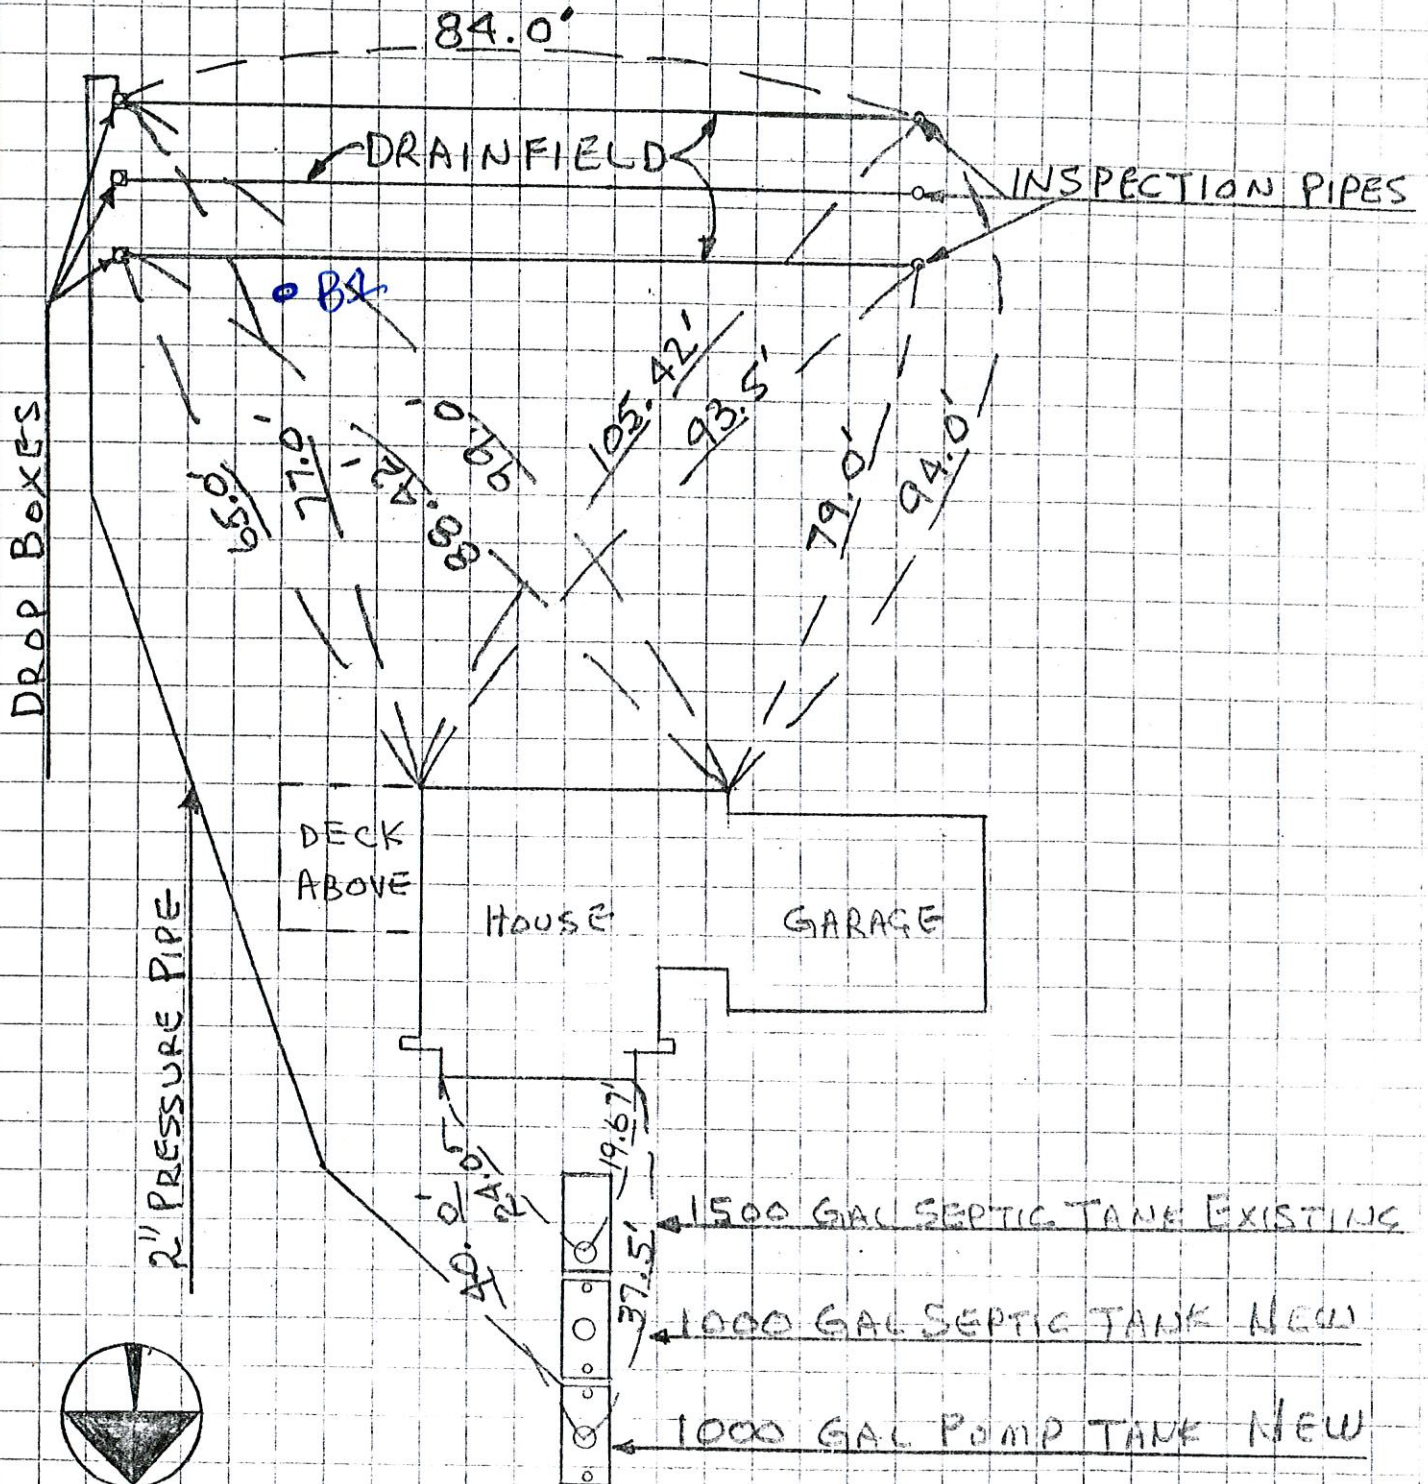 84.0'
DRAINFIELD
INSPECTION PIPES
B1
DROP BOXES
65.0'
77.0'
88.42'
99.0'
105.42'
93.5'
79.0'
94.0'
DECK
ABOVE
HOUSE
GARAGE
2" PRESSURE PIPE
19.67'
24.05
40.0'
37.5'
1500 GAL SEPTIC TANK EXISTING
1000 GAL SEPTIC TANK NEW
1000 GAL PUMP TANK NEW